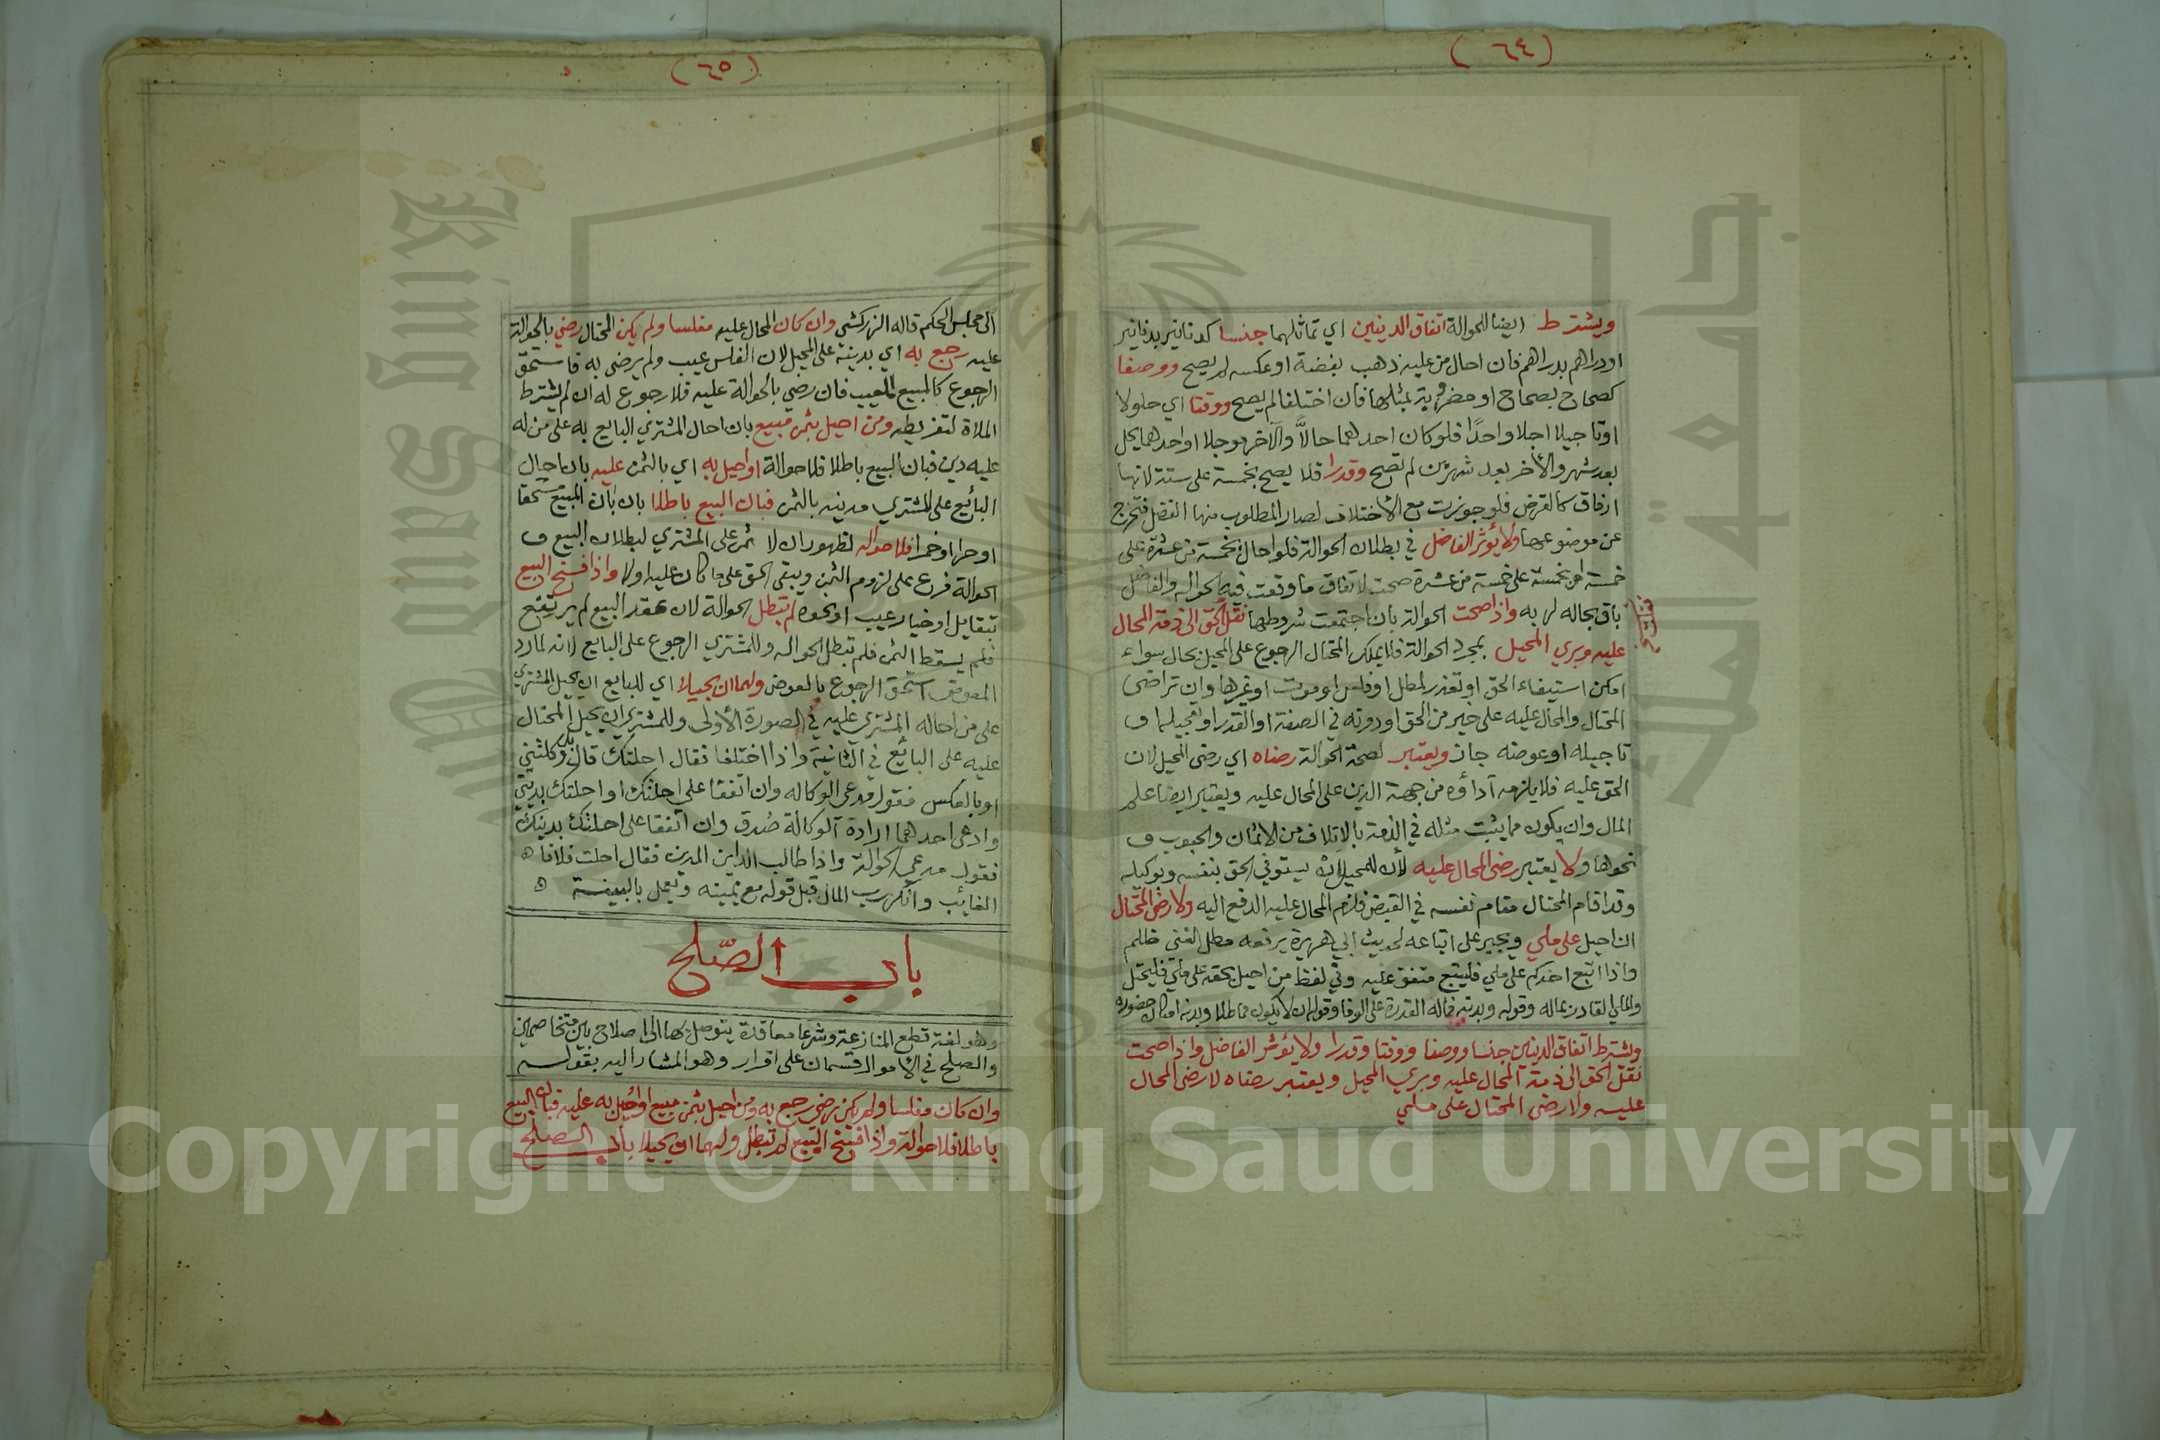 (٦٤)
ويشترط ايضا للحوالة اتفاق الدينين اي تماثلهما جنسا كدنانير بدنانير
او دراهم بدراهم فان احال من عليه ذهب بفضة او عكسه لم يصح ووصفا
كصحاح بصحاح او مضروبة بمثلها فان اختلفا لم يصح ووقتا اي حلولا
او تاجيلا اجلا واحدًا فلو كان احدهما حالاً والآخر موجلا او احدهما يحل
بعد شهر والأخر بعد شهرين لم تصح وقدرا فلا يصح بخمسة على ستة لانها
ارفاق كالقرض فلو جوزت مع الاختلاف لصار المطلوب منها الفضل فتخرج
عن موضوعها ولا يؤثر الفاضل في بطلان الحوالة فلو احال بخمسة من عشرة على
خمسة او بخمسة على خمسة من عشرة صحت لاتفاق ما وقعت فيه الحواله والفاضل
باق بحاله لربه واذا صحت الحوالة بان اجتمعت شروطها نقل الحق الى ذمة المحال
عليه وبري المحيل بمجرد الحوالة فلا يملك المحتال الرجوع على المحيل بحال سواء
امكن استيفاء الحق او تعذر لمطل او فلس او موت او غيرها وان تراضى
المحتال والمحال عليه على خير من الحق او دونه في الصفة او القدر او تعجيله او
تاجيله او عوضه جاز ويعتبر لصحة الحوالة رضاه اي رضى المحيل لان
الحق عليه فلا يلزمه آداؤه من جهة الدين على المحال عليه ويعتبر ايضا علم
المال وان يكون مما يثبت مثله في الذمة بالاتلاف من الاثمان والحبوب و
نحوها ولا يعتبر رضى المحال عليه لأن للمحيل ان يستوفي الحق بنفسه وبوكيله
وقد اقام المحتال مقام نفسه في القبض فلزم المحال عليه الدفع اليه ولا رضى المحتال
ان احيل على ملي ويجبر على اتباعه لحديث ابي هريرة يرفعه مطل الغني ظلم
واذا اتبع احدكم على ملي فليتبع متفق عليه وفي لفظ من احيل بحقه على ملي فليحتل
والملي القادر بماله وقوله وبدنه فماله القدرة على الوفا وقوله ان لا يكون مماطلا وبدنه امكان حضوره
ويشترط اتفاق الدينين جنسا ووصفا ووقتا وقدرا ولا يؤثر الفاضل واذا صحت
نقل الحق الى ذمة المحال عليه وبري المحيل ويعتبر رضاه لا رضى المحال
عليه ولا رضى المحتال على ملي
(٦٥)
الى مجلس الحكم قاله الزركشي وان كان المحال عليه مفلسا ولم يكن المحتال رضي بالحوالة
عليه رجع به اي بدينه على المحيل لان الفلس عيب ولم يرضى به فاستحق
الرجوع كالمبيع المعيب فان رضي بالحوالة عليه فلا رجوع له ان لم يشترط
الملاة لتفريطه ومن احيل بثمن مبيع بان احال المشتري البايع به على من له
عليه دين فبان البيع باطلا فلا حوالة او احيل به اي بالثمن عليه بان احال
البائع على المشتري مدينه بالثمن فبان البيع باطلا بان بان المبيع مستحقا
او حرا او خمرا فلا حواله لظهور ان لا ثمن على المشتري لبطلان البيع و
الحوالة فرع على لزوم الثمن ويبقى الحق على ما كان عليه اولا واذا فسخ البيع
بتقايل او خيار عيب او نحوه لم تبطل الحوالة لان عقد البيع لم يرتفع
فلم يسقط الثمن فلم تبطل الحواله وللمشتري الرجوع على البايع لانه لما رد
المعوض استحق الرجوع بالعوض ولهما ان يحيلا اي للبايع ان يحيل المشتري
على من احاله المشتري عليه في الصورة الأولى وللمشتري ان يحيل المحتال
عليه على البائع في الثانية واذا اختلفا فقال احلتك قال بل وكلتني
او بالعكس فقول مدعي الوكاله وان اتفقا على احلتك او احلتك بديني
وادعى احدهما ارادة الوكالة صُدق وان اتفقا على احلتك بدينك
فقول مدعي الحوالة واذا طالب الداين المدين فقال احلت فلانا
الغائب وانكر رب المال قبل قوله مع يمينه ويعمل بالبينة
باب الصّلح
وهو لغة قطع المنازعة وشرعا معاقدة يتوصل بها الى اصلاح بين متخاصمين
والصلح في الاموال قسمان على اقرار وهو المشار اليه بقوله
وان كان مفلسا ولم يكن رضى رجع به ومن احيل بثمن مبيع او احيل به عليه فبان البيع
باطلا فلا حوالة واذا فسخ البيع لم تبطل ولهما ان يحيلا باب الصلح
جامعة الملك سعود
King Saud University
Copyright © King Saud University